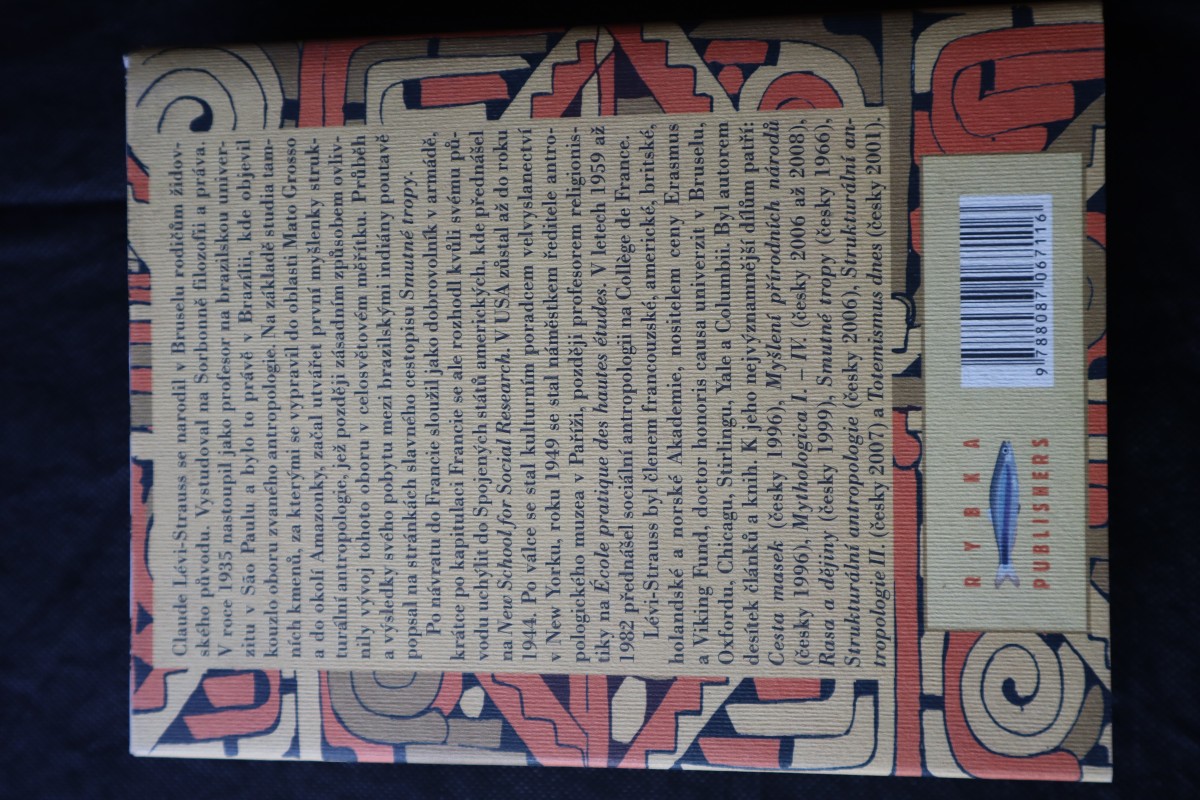 Claude Lévi-Strauss se narodil v Bruselu rodičům židov-
ského původu. Vystudoval na Sorbonně filozofii a práva.
V roce 1935 nastoupil jako profesor na brazilskou univer-
zitu v São Paulu a bylo to právě v Brazílii, kde objevil
kouzlo oboru zvaného antropologie. Na základě studia tam-
ních kmenů, za kterými se vypravil do oblasti Mato Grosso
a do okolí Amazonky, začal utvářet první myšlenky struk-
turální antropologie, jež později zásadním způsobem ovliv-
nily vývoj tohoto oboru v celosvětovém měřítku. Průběh
a výsledky svého pobytu mezi brazilskými indiány poutavě
popsal na stránkách slavného cestopisu Smutné tropy.
Po návratu do Francie sloužil jako dobrovolník v armádě,
krátce po kapitulaci Francie se ale rozhodl kvůli svému pů-
vodu uchýlit do Spojených států amerických, kde přednášel
na New School for Social Research. V USA zůstal až do roku
1944. Po válce se stal kulturním poradcem velvyslanectví
v New Yorku, roku 1949 se stal náměstkem ředitele antro-
pologického muzea v Paříži, později profesorem religionis-
tiky na École pratique des hautes études. V letech 1959 až
1982 přednášel sociální antropologii na Collège de France.
Lévi-Strauss byl členem francouzské, americké, britské,
holandské a norské Akademie, nositelem ceny Erasmus
a Viking Fund, doctor honoris causa univerzit v Bruselu,
Oxfordu, Chicagu, Stirlingu, Yale a Columbii. Byl autorem
desítek článků a knih. K jeho nejvýznamnější dílům patří:
Cesta masek (česky 1996), Myšlení přírodních národů
(česky 1996), Mythologica I. – IV. (česky 2006 až 2008),
Rasa a dějiny (česky 1999), Smutné tropy (česky 1966),
Strukturální antropologie (česky 2006), Strukturální an-
tropologie II. (česky 2007) a Totemismus dnes (česky 2001).
RYBKA
PUBLISHERS
9 788087 067116